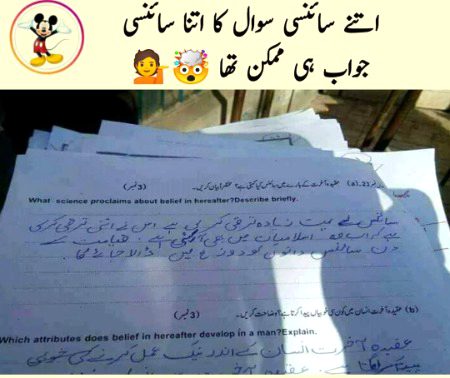 اتنے سائنسی سوال کا اتنا سائنسی
جواب ہی ممکن تھا 🤯 💁
(a).2 عقیدہ آخرت کے بارے میں سائنس کیا کہتی ہے؟ مختصراً بیان کریں۔ (3 نمبر)
What science proclaims about belief in hereafter?Describe briefly.
سائنس نے بہت زیادہ ترقی کر لی ہے اس نے اتنی ترقی کر لی
ہے کہ اب وہ اسلامیات میں بھی آ گئی ہے۔ قیامت کے
دن سائنس دانوں کو دوزخ میں ڈالا جائے گا۔
(b) عقیدہ آخرت انسان میں کون سی خوبیاں پیدا کرتا ہے؟ وضاحت کریں۔ (3 نمبر)
Which attributes does belief in hereafter develop in a man?Explain.
عقیدہ آخرت انسان کے اندر نیک عمل کرنے کی
پیدا کرتا ہے۔ عقیدہ آخرت